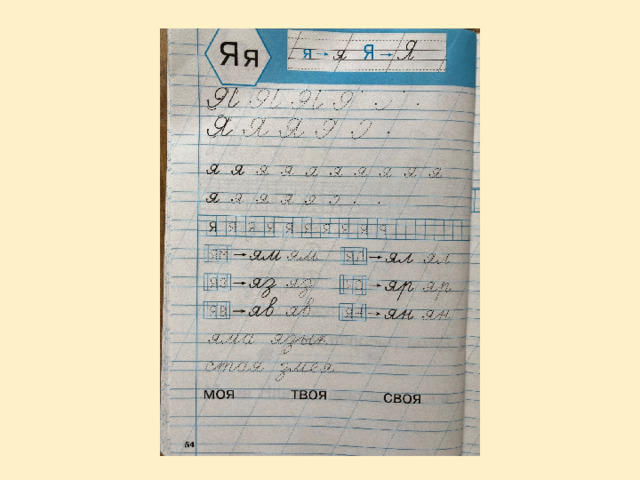 Яя я→я Я→Я
Я Я Я Я
Я Я Я Я
я я я я я я я я я я
я я я я я
я я я я я я я я я
ям→ям ям ял→ял ял
яз→яз яз яр→яр яр
яв→яв яв ян→ян ян
яма язык
стая змея
МОЯ ТВОЯ СВОЯ
54